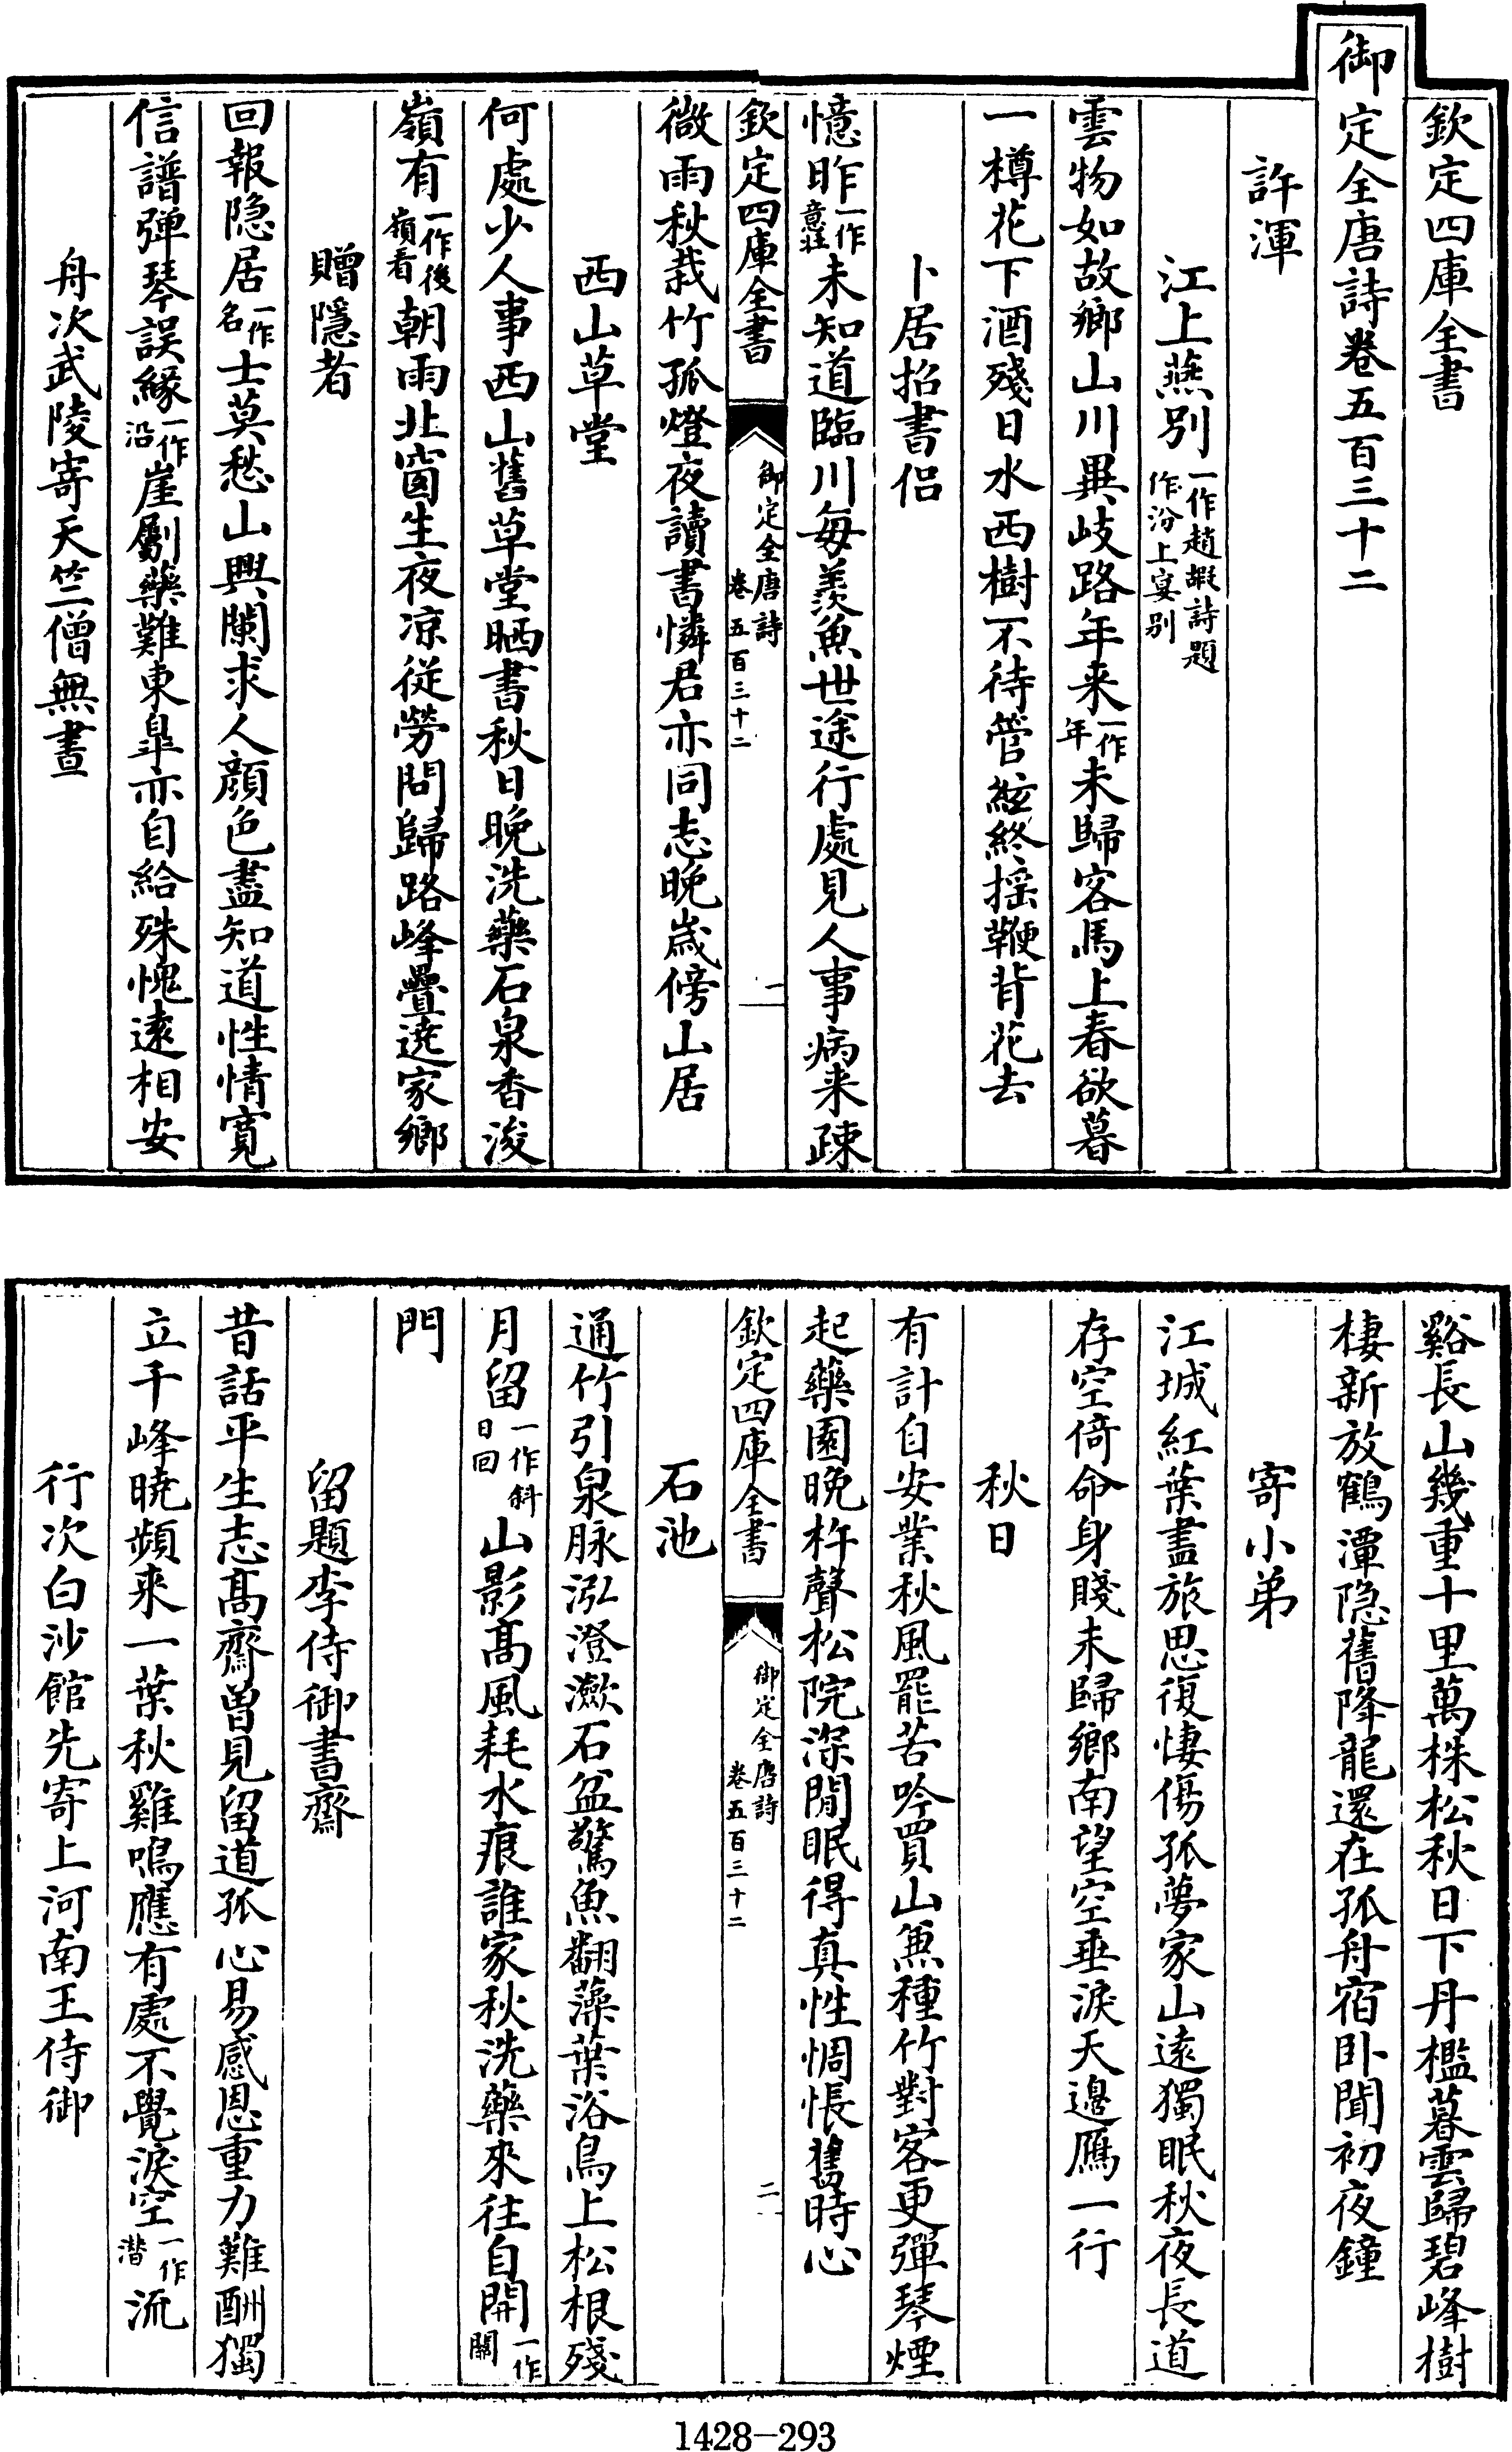 欽定四庫全書
御定全唐詩卷五百三十二
許渾
江上燕別一作趙嘏詩題作汾上宴别
雲物如故鄉山川異岐路年来一作年未歸客馬上春欲暮
一樽花下酒殘日水西樹不待管絃終揺鞭背花去
卜居招書侣
憶昨一作意往未知道臨川毎羨魚世途行處見人事病来疎
欽定四庫全書
御定全唐詩
卷五百三十二
一
微雨秋栽竹孤燈夜讀書憐君亦同志晚嵗傍山居
西山草堂
何處少人事西山舊草堂晒書秋日晚洗藥石泉香後
嶺有一作後嶺看朝雨北窗生夜凉從勞問歸路峰疊遶家鄉
贈隱者
回報隐居一作名士莫愁山興闌求人顔色盡知道性情寛
信譜弹琴誤緣一作沿崖劚藥難東臯亦自給殊愧遠相安
舟次武陵寄天竺僧無晝
谿長山幾重十里萬株松秋日下丹檻暮雲歸碧峰樹
棲新放鶴潭隐舊降龍還在孤舟宿卧聞初夜鐘
寄小弟
江城紅葉盡旅思復悽傷孤夢家山遠獨眠秋夜長道
存空倚命身賤未歸鄉南望空垂淚天邉鴈一行
秋日
有計自安業秋風罷苦吟買山兼種竹對客更彈琴煙
起藥園晚杵聲松院深閒眠得真性惆悵舊時心
欽定四庫全書
御定全唐詩
卷五百三十二
二
石池
通竹引泉脉泓澄潋石盆驚魚翻藻葉浴鳥上松根殘
月留一作斜日回山影髙風耗水痕誰家秋洗藥來往自開一作關
門
留題李侍御書齋
昔話平生志髙齋曽見留道孤心易感恩重力難酬獨
立千峰曉頻来一葉秋雞鳴應有處不覺淚空一作潛流
行次白沙館先寄上河南王侍御
1428-293